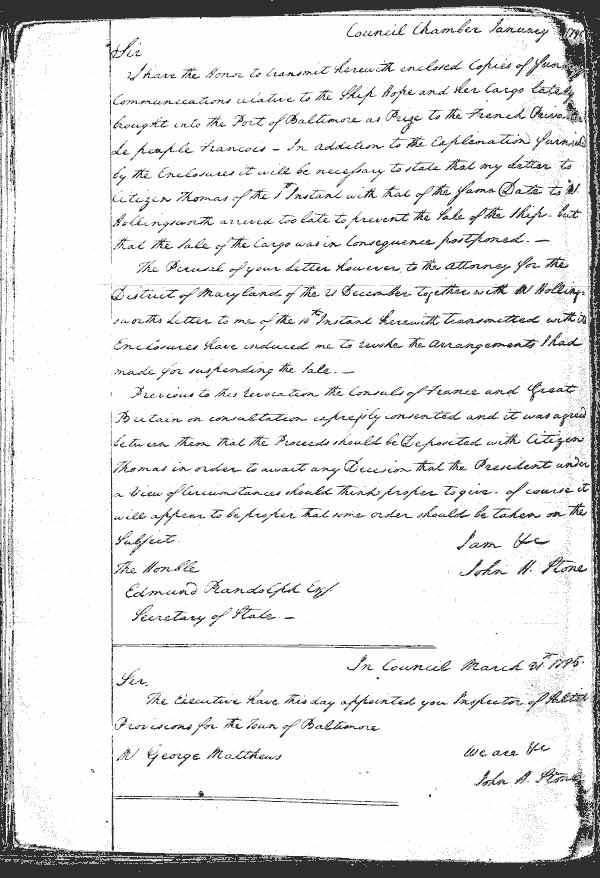 Council Chamber January 1795
Sir
I have the Honor to transmit herewith enclosed Copies of Sundry
Communications relative to the Ship Hope and her Cargo lately
brought into the Port of Baltimore as Prize to the French Privateer
Le peuple Francois – In addition to the Explanation furnished
by the Enclosures it will be necessary to state that my Letter to
Citizen Thomas of the 1st Instant with that of the same Date to Mr
Hollingsworth arrived too late to prevent the Sale of the Ship. but
that the Sale of the Cargo was in Consequence postponed. —
The Perusal of your Letter however, to the Attorney for the
District of Maryland of the 21 December together with Mr Hollings-
worths Letter to me of the 10th Instant herewith transmitted with its
Enclosures have induced me to revoke the Arrangements I had
made for suspending the Sale. —
Previous to this Revocation the Consuls of France and Great
Britain on consultation expressly consented and it was agreed
between them that the Proceeds should be Deposited with Citizen
Thomas in order to await any Decision that the President under
a View of Circumstances should think proper to give. of course it
will appear to be proper that some order should be taken on the
Subject.
I am &c
The Honble
John H. Stone
Edmund Randolph Esq.
Secretary of State —
In Council March 21st 1795.
Sir,
The Executive have this day appointed you Inspector of Salted
Provisions for the Town of Baltimore
We are &c
Mr George Matthews
John H. Stone